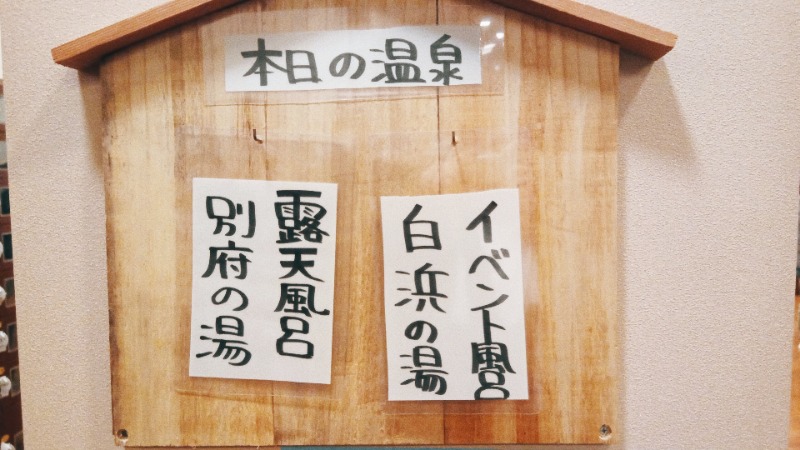 本日の温泉
イベント風呂
白浜の湯
露天風呂
別府の湯